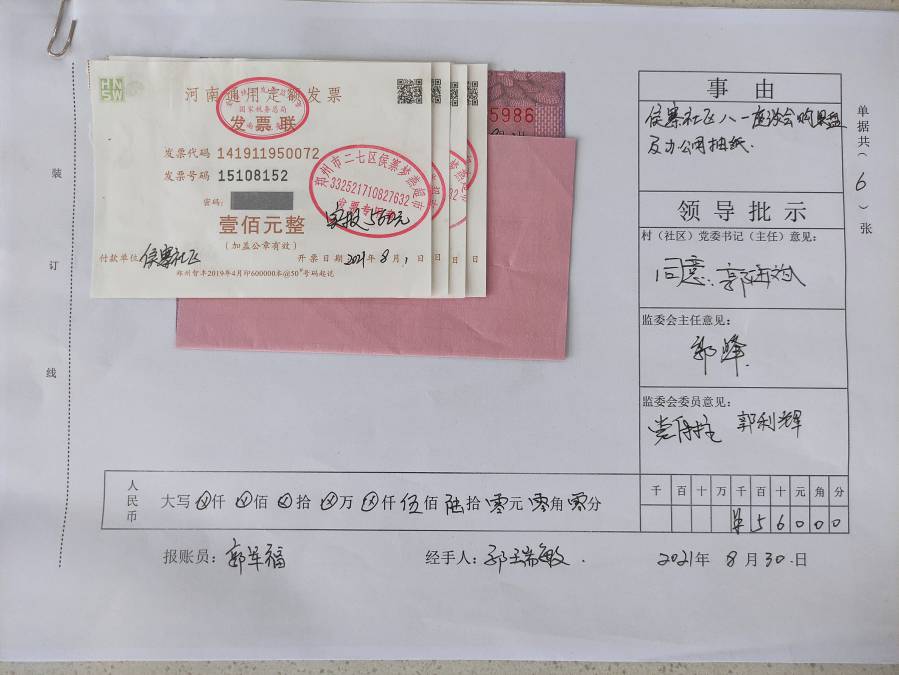 HN
SW
河南通用定额发票
国家税务总局
发票联
发票代码 141911950072
发票号码 15108152
密码:
壹佰元整
(加盖公章有效)
付款单位 侯寨社区
开票日期 2021年 8月 1日
日 日 日
郑州智丰2019年4月印600000本@50#号码起讫
郑州市二七区侯寨梦燕超市
332521710827632
发票专用章
实报560元
5986
装
订
线
事由
侯寨社区八一座谈会购果盘
及办公用抽纸.
领导批示
村(社区)党委书记(主任)意见:
同意.
监委会主任意见:
郭峰.
监委会委员意见:
郭利辉
单据共(6)张
人民币
大写 ⊗仟 ⊗佰 ⊗拾 ⊗万 ⊗仟 伍佰 陆拾 零元 零角 零分
千 百 十 万 千 百 十 元 角 分
¥ 5 6 0 0 0
报账员: 郭军福
经手人: 郭瑞敏.
2021年 8月30.日